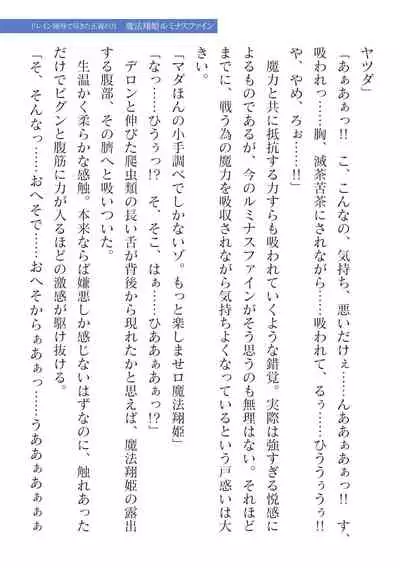 ドレイン陵辱で尽きた正義の力　魔法翔姫ルミナスファイン
ヤツダ」
「あぁあぁっ!!　こ、こんなの、気持ち、悪いだけぇ……んああぁあぁっ!!　す、
吸われっ……胸、滅茶苦茶にされながら……吸われて、るぅ……ひううぅうぅ!!
や、やめ、ろぉ……!!」
　魔力と共に抵抗する力すらも吸われていくような錯覚。実際は強すぎる悦感に
よるものであるが、今のルミナスファインがそう思うのも無理はない。それほど
までに、戦う為の魔力を吸収されながら気持ちよくなっているという戸惑いは大
きい。
「マダほんの小手調べでしかないゾ。もっと楽しませロ魔法翔姫」
「なっ……ひうぅっ!?　そ、そこ、はぁ……ひああぁあぁっ!?」
　デロンと伸びた爬虫類の長い舌が背後から現れたかと思えば、魔法翔姫の露出
する腹部、その臍へと吸いついた。
　生温かく柔らかな感触。本来ならば嫌悪しか感じないはずなのに、触れあった
だけでビグンと腹筋に力が入るほどの激感が駆け抜ける。
「そ、そんなっ……おへそで……おへそからぁあぁっ……うああぁあぁぁぁ